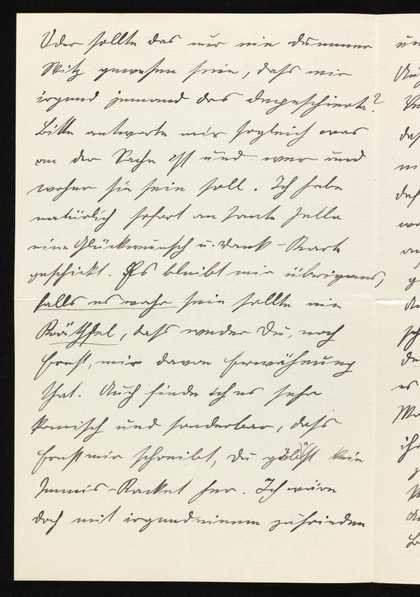 Oder sollte das nur ein dummer
Witz gewesen sein, dass mir
irgend jemand das depeschierte?
Bitte antworte mir sogleich was
an der Sache ist und wer und
woher sie sein soll. Ich habe
natürlich sofort an Tante Jella
eine Glückwunsch u. Dank-Karte
geschickt. Es bleibt mir übrigens,
falls es wahr sein sollte ein
Räthsel, dass weder Du, noch
Ernst, mir davon Erwähnung
that. Auch finde ich es sehr
komisch und sonderbar, dass
Ernst mir schreibt, Du gäbst kein
Tennis-Racket her. Ich wäre
doch mit irgendeinem zufrieden